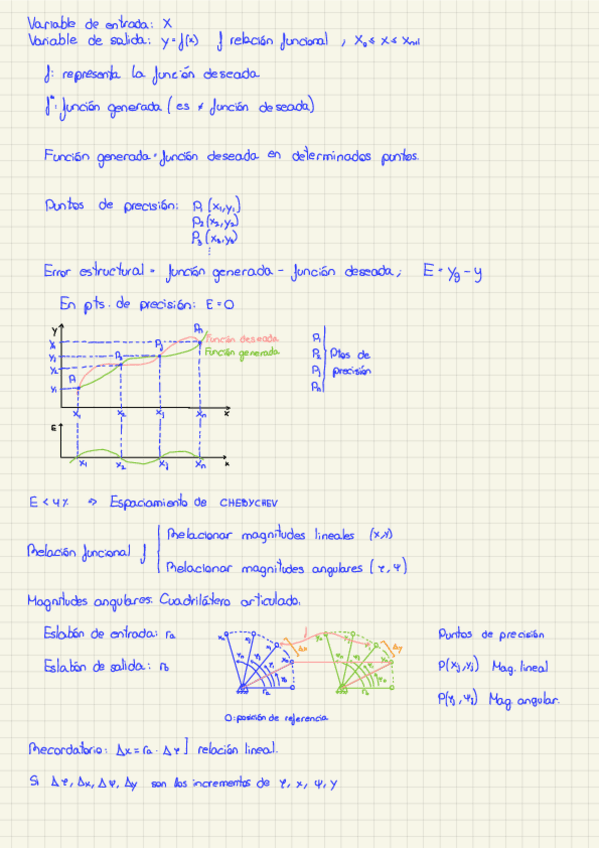 Variable de entrada: X
Variable de salida: y=f(x) f relación funcional , X₀ ≤ X ≤ Xn+1
f: representa la función deseada
f*: función generada (es ≠ función deseada)
Función generada = función deseada en determinados puntos.
Puntos de precisión: P₁ (x₁,y₁)
P₂ (x₂,y₂)
P₃ (x₃,y₃)
⋮
Error estructural = función generada - función deseada; E = yg - y
En pts. de precisión: E=0
Y
Pn
Función deseada
Función generada
P₁
P₂
Pj
Pn
Ptos de
precisión
Pj
P₂
P₁
y₁
x₁ x₂ xj xn x
E
x₁ x₂ xj xn x
E < 4% => Espaciamiento de CHEBYCHEV
Relación funcional f
Relacionar magnitudes lineales (x,y)
Relacionar magnitudes angulares (φ, ψ)
Magnitudes angulares: Cuadrilátero articulado.
Eslabón de entrada: ra
Eslabón de salida: rb
Δx
Δy
Puntos de precisión
P(xj,yj) Mag. lineal
P(φj, ψj) Mag. angular.
0: posición de referencia
Recordatorio: Δx = ra · Δφ ] relación lineal.
Si Δφ, Δx, Δψ, Δy son los incrementos de φ, x, ψ, y